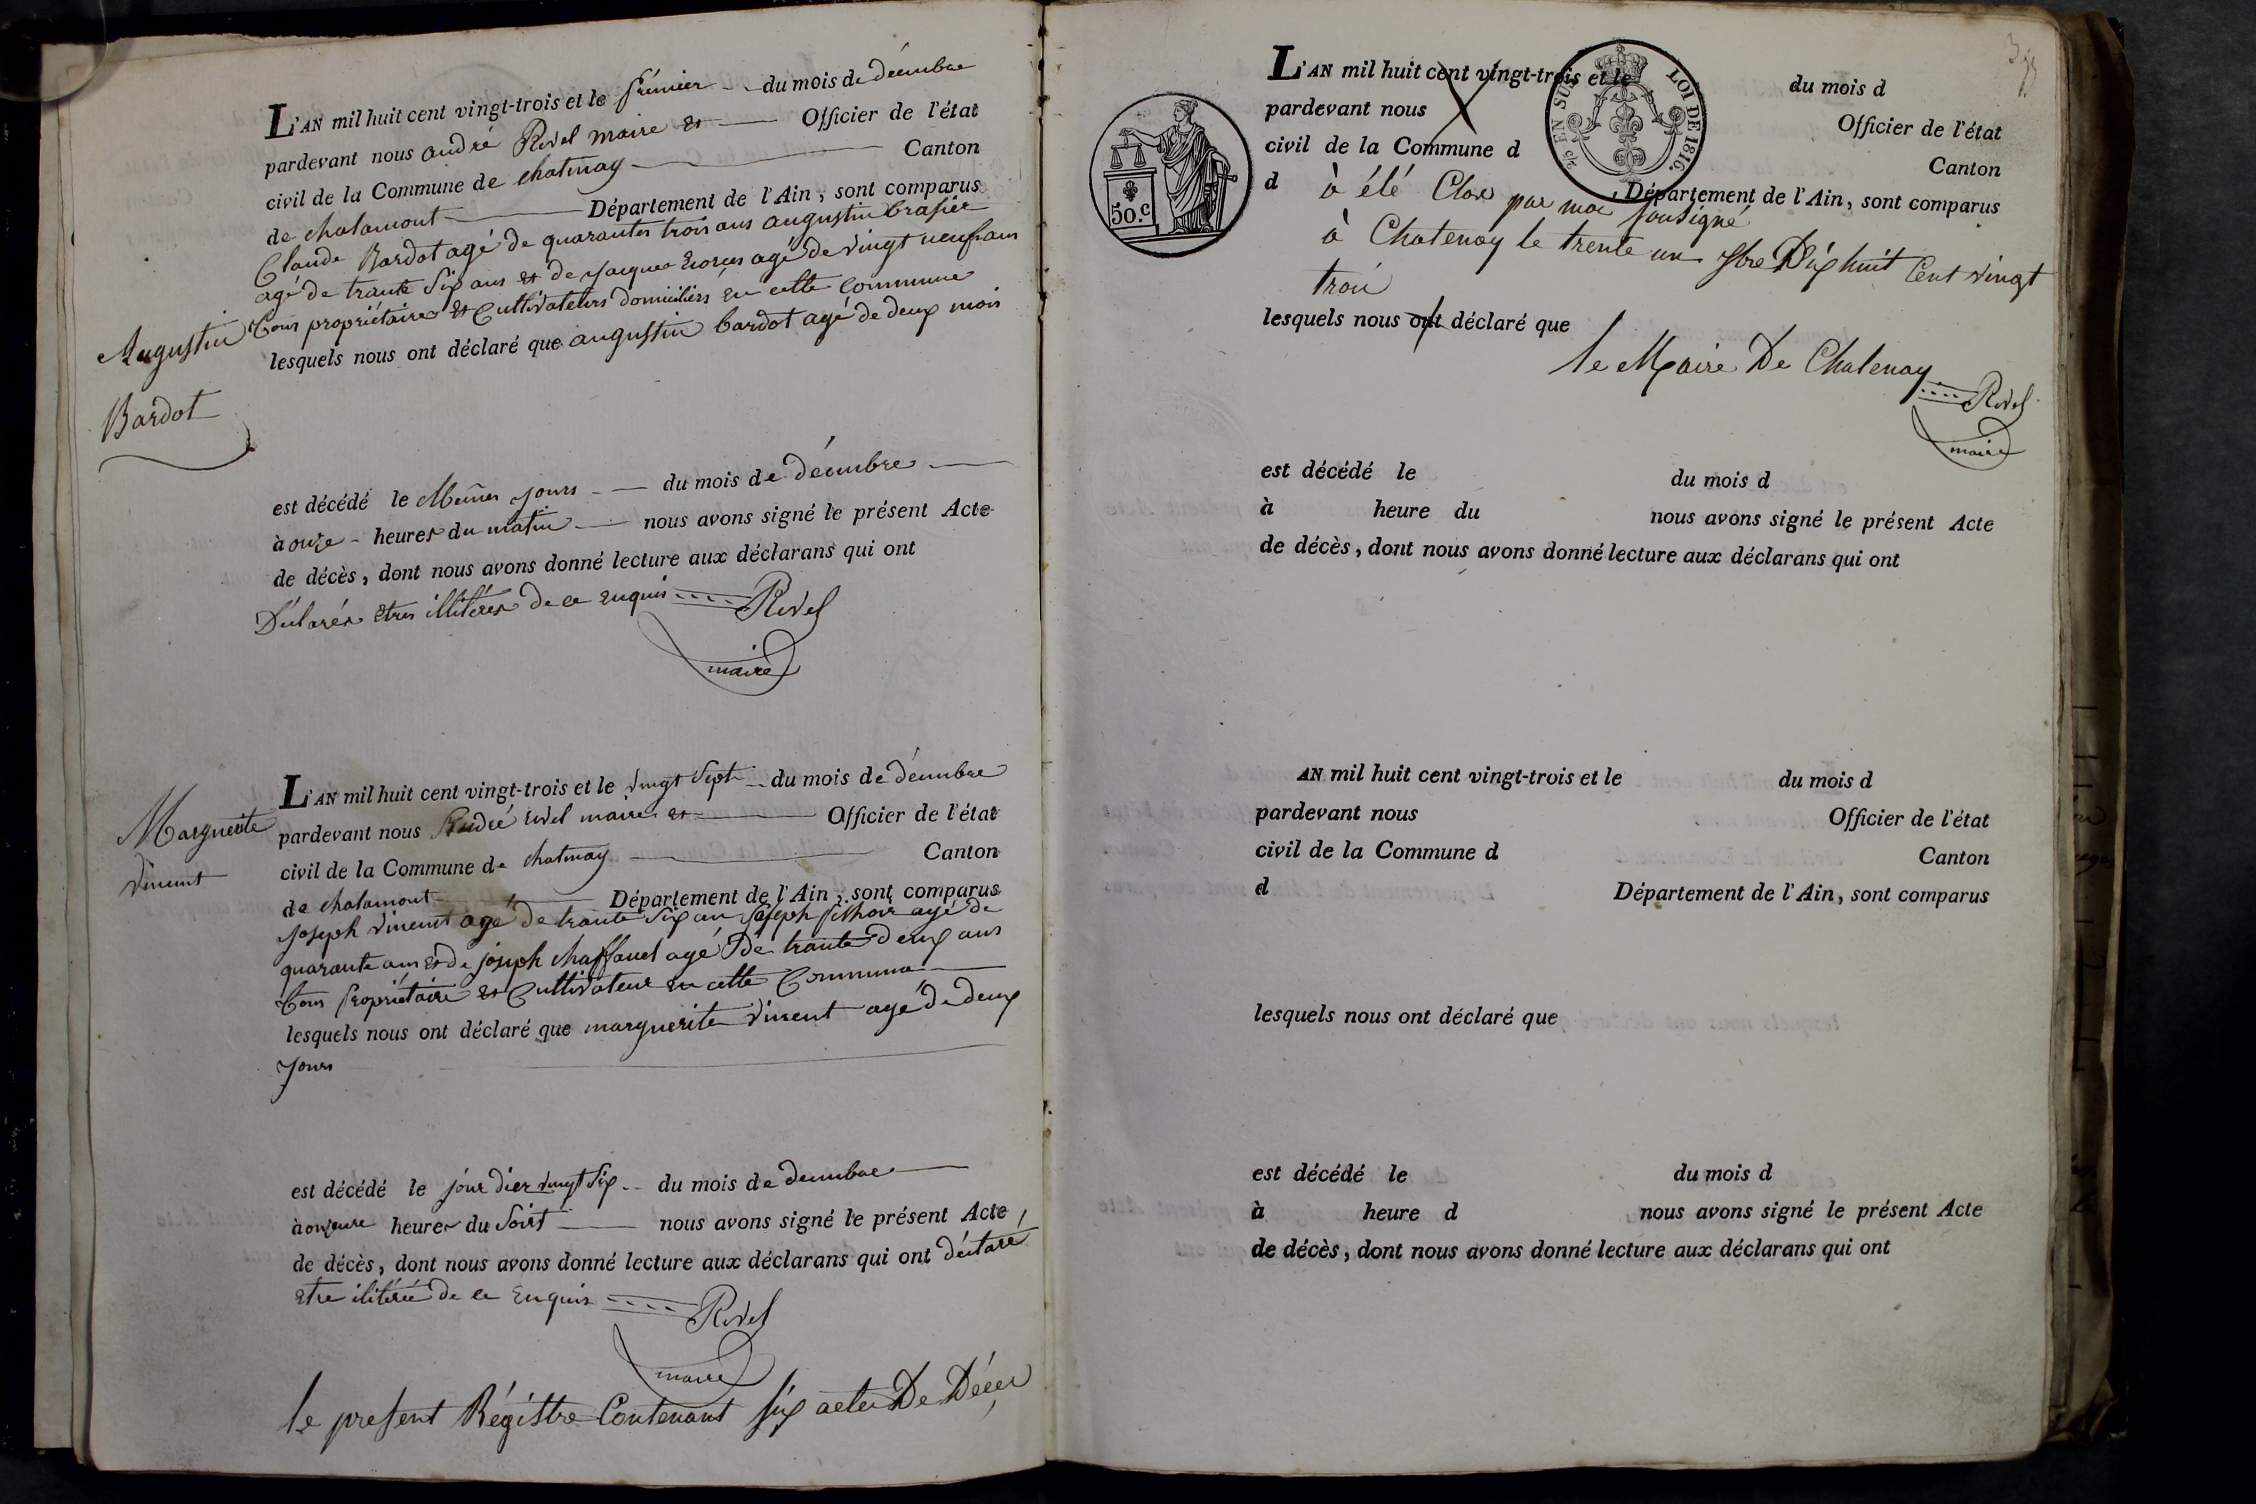 L'AN mil huit cent vingt-trois et le premier du mois de décembre
pardevant nous andré Rivel maire et Officier de l'état
civil de la Commune de chatenay Canton
de chalamont Département de l'Ain, sont comparus
Claude Bardot agé de quarantes trois ans augustin brasier
agé de trante six ans et de jacques agé de vingt neuf ans
tous propriétaires et Cultivateurs domiciliers en cette commune
lesquels nous ont déclaré que augustin bardot agé de deux mois
Augustin
Bardot
est décédé le Mêmes jours du mois de décembre
à onze heures du matin nous avons signé le présent Acte
de décès, dont nous avons donné lecture aux déclarans qui ont
Déclarés etres illitéres de ce enquis Rivel
maire
L'AN mil huit cent vingt-trois et le vingt sept du mois de décembre
pardevant nous André rivel maire et Officier de l'état
civil de la Commune de chatenay Canton
de chalamont Département de l'Ain, sont comparus
joseph vincent agé de trante six an joseph agé de
quarante ans et de joseph chaffauel agé De trante deux ans
tous propriétaire et Cultivateur en cette Commune
lesquels nous ont déclaré que marguerite vincent agé de deux
jours
Marguerite
vincent
est décédé le jour dier vingt six du mois de decembre
à heures du Soirt nous avons signé le présent Acte
de décès, dont nous avons donné lecture aux déclarans qui ont déclaré
etre ilitéré De ce enquis Rivel
maire
le present Régistre Contenant six actes De Décer
L'AN mil huit cent vingt-trois et le du mois d
pardevant nous Officier de l'état
civil de la Commune d Canton
d Département de l'Ain, sont comparus
EN SUS LOI DE 1816.
50.c
à élé Clos par moi soussigné
à Chatenay le trente un xbre Dix huit Cent vingt
trois
lesquels nous ont déclaré que
le Maire De Chatenay
Rivel
maire
est décédé le du mois d
à heure du nous avons signé le présent Acte
de décès, dont nous avons donné lecture aux déclarans qui ont
AN mil huit cent vingt-trois et le du mois d
pardevant nous Officier de l'état
civil de la Commune d Canton
d Département de l'Ain, sont comparus
lesquels nous ont déclaré que
est décédé le du mois d
à heure d nous avons signé le présent Acte
de décès, dont nous avons donné lecture aux déclarans qui ont